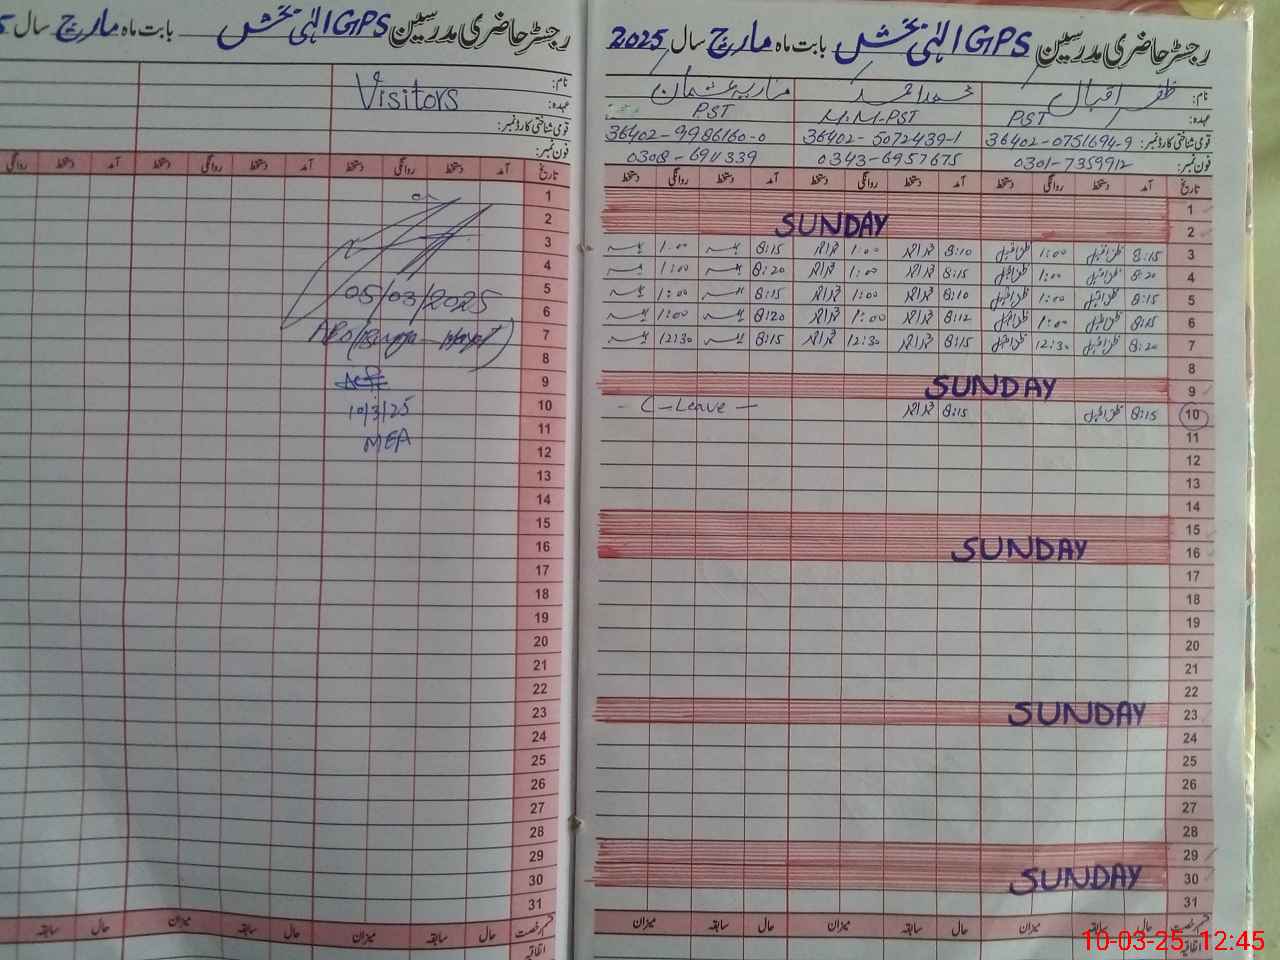 رجسٹر حاضری مدرسین GPS الٰہی بخش بابت ماہ مارچ سال
Visitors
نام:
عہدہ:
قومی شناختی کارڈ نمبر:
فون نمبر:
تاریخ آمد دستخط روانگی دستخط آمد دستخط روانگی دستخط آمد دستخط روانگی
1
2
3
4
5 05/03/2025
6
7
8
9
10 10/3/25
11 MEA
12
13
14
15
16
17
18
19
20
21
22
23
24
25
26
27
28
29
30
31
قسم رخصت حال سابقہ میزان حال سابقہ میزان حال سابقہ
اتفاقیہ
رجسٹر حاضری مدرسین GPS الٰہی بخش بابت ماہ مارچ سال 2025
نام: ظفر اقبال محمد احمد ماریہ عثمان
عہدہ: PST M.M-PST PST
قومی شناختی کارڈ نمبر: 36402-0751694-9 36402-5072439-1 36402-9986160-0
فون نمبر: 0301-7359912 0343-6957675
تاریخ آمد دستخط روانگی دستخط آمد دستخط روانگی دستخط آمد دستخط روانگی دستخط
1
2 SUNDAY
3 8:15 ظفر اقبال 1:00 ظفر اقبال 8:10 1:00 8:15 1:00
4 8:20 ظفر اقبال 1:00 ظفر اقبال 8:15 1:00 8:20 1:00
5 8:15 ظفر اقبال 1:00 ظفر اقبال 8:10 1:00 8:15 1:00
6 8:15 ظفر اقبال 1:00 ظفر اقبال 8:12 1:00 8:20 1:00
7 8:20 ظفر اقبال 12:30 ظفر اقبال 8:15 12:30 8:15 12:30
8
9 SUNDAY
10 8:15 ظفر اقبال 8:15 - C-Leave -
11
12
13
14
15
16 SUNDAY
17
18
19
20
21
22
23 SUNDAY
24
25
26
27
28
29
30 SUNDAY
31
قسم رخصت حال سابقہ میزان حال سابقہ میزان حال سابقہ میزان
اتفاقیہ
10-03-25 12:45